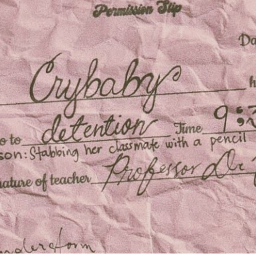 Permission Slip
Da
Crybaby h
o to detention Time 9:
son: Stabbing her classmate with a pencil
ature of teacher Professor